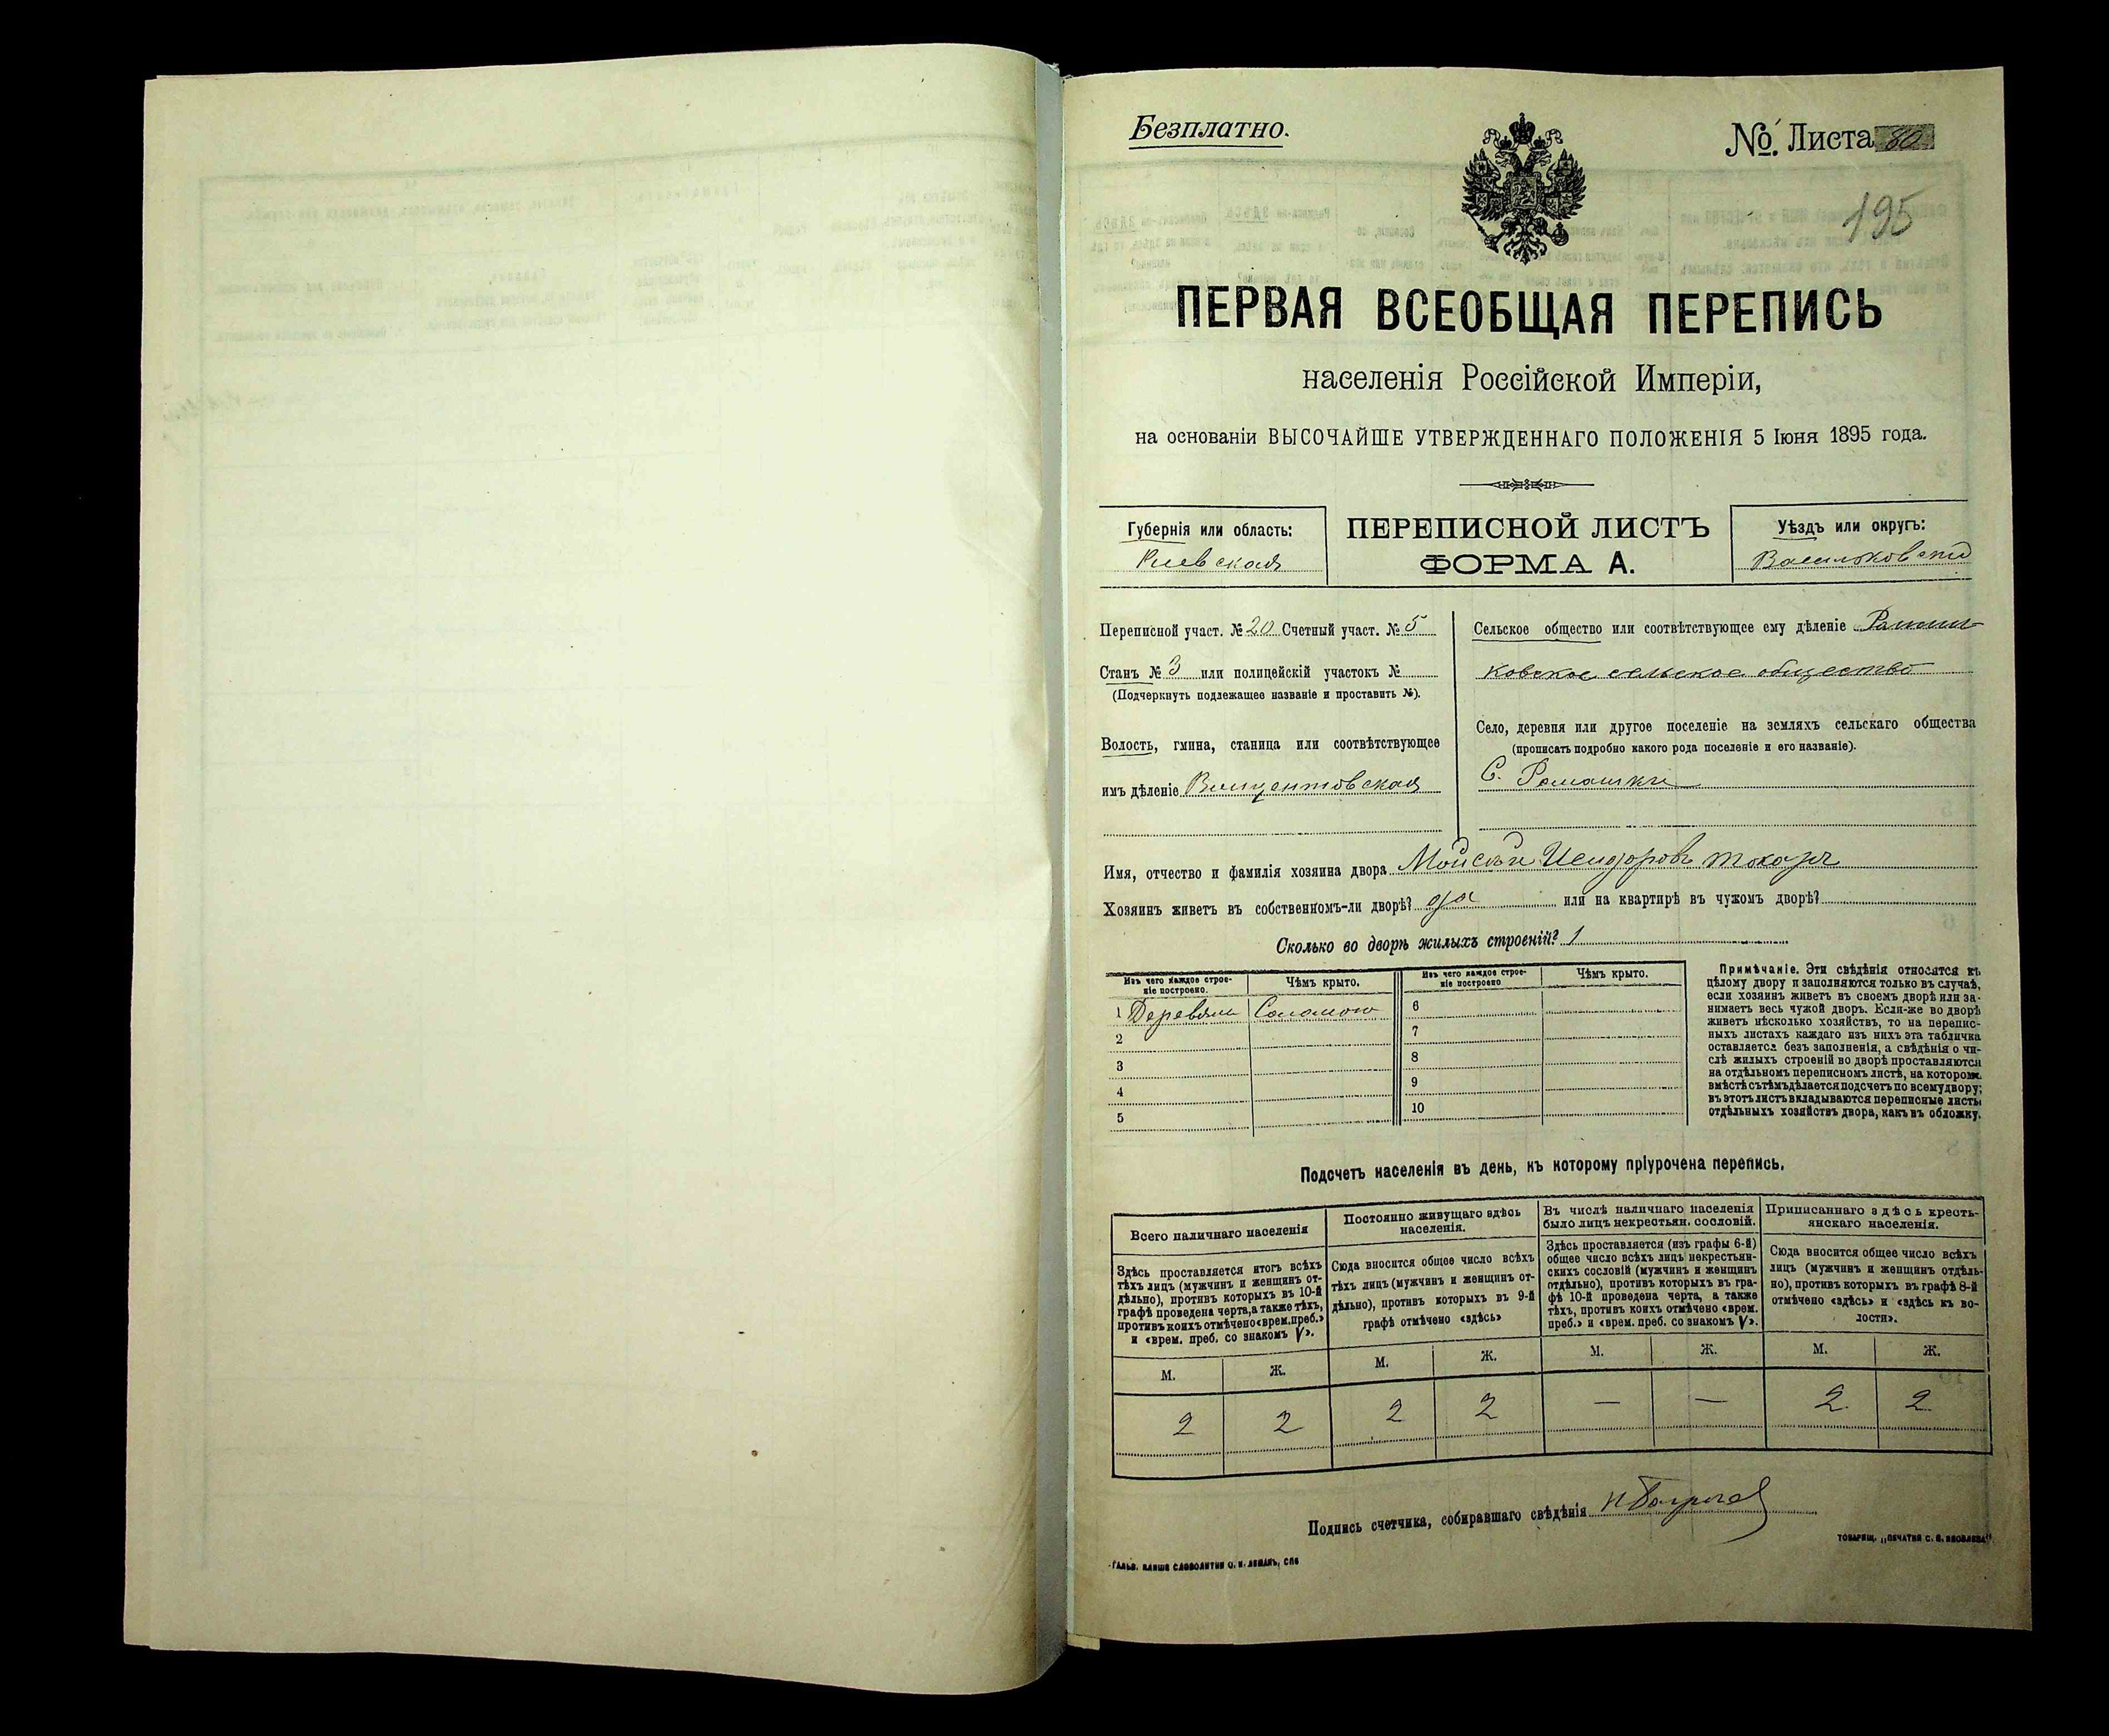 Безплатно.
№ Листа 80
195
ПЕРВАЯ ВСЕОБЩАЯ ПЕРЕПИСЬ
населенія Россійской Имперіи,
на основаніи ВЫСОЧАЙШЕ УТВЕРЖДЕННАГО ПОЛОЖЕНІЯ 5 Іюня 1895 года.
Губернія или область:
Киевская
ПЕРЕПИСНОЙ ЛИСТЪ
ФОРМА А.
Уѣздъ или округъ:
Васильковскій
Переписной участ. № 20 Счетный участ. № 5
Станъ № 3 или полицейскій участокъ №
(Подчеркнуть подлежащее названіе и проставить №).
Волость, гмина, станица или соотвѣтствующее
имъ дѣленіе Винцентовская
Сельское общество или соотвѣтствующее ему дѣленіе
ковское сельское общество
Село, деревня или другое поселеніе на земляхъ сельскаго общества
(прописать подробно какого рода поселеніе и его названіе).
С. Ромашки
Имя, отчество и фамилія хозяина двора Мойсѣй Исидоровъ Токарь
Хозяинъ живетъ въ собственномъ-ли дворѣ? да или на квартирѣ въ чужомъ дворѣ?
Сколько во дворѣ жилыхъ строеній? 1
Изъ чего каждое строе-
ніе построено.
Чѣмъ крыто.
1 Деревян Соломою
2
3
4
5
Изъ чего каждое строе-
ніе построено
Чѣмъ крыто.
6
7
8
9
10
Примѣчаніе. Эти свѣдѣнія относятся къ
цѣлому двору и заполняются только въ случаѣ,
если хозяинъ живетъ въ своемъ дворѣ или за-
нимаетъ весь чужой дворъ. Если-же во дворѣ
живетъ нѣсколько хозяйствъ, то на перепис-
ныхъ листахъ каждаго изъ нихъ эта табличка
оставляется безъ заполненія, а свѣдѣнія о чи-
слѣ жилыхъ строеній во дворѣ проставляются
на отдѣльномъ переписномъ листѣ, на которомъ
вмѣстѣ съ тѣмъ дѣлается подсчетъ по всему двору;
въ этотъ листъ вкладываются переписные листы
отдѣльныхъ хозяйствъ двора, какъ въ обложку.
Подсчетъ населенія въ день, къ которому пріурочена перепись.
Всего наличнаго населенія
Здѣсь проставляется итогъ всѣхъ
тѣхъ лицъ (мужчинъ и женщинъ от-
дѣльно), противъ которыхъ въ 10-й
графѣ проведена черта, а также тѣхъ,
противъ коихъ отмѣчено «врем. преб.»
и «врем. преб. со знакомъ V».
Постоянно живущаго здѣсь
населенія.
Сюда вносится общее число всѣхъ
тѣхъ лицъ (мужчинъ и женщинъ от-
дѣльно), противъ которыхъ въ 9-й
графѣ отмѣчено «здѣсь»
Въ числѣ наличнаго населенія
было лицъ некрестьян. сословій.
Здѣсь проставляется (изъ графы 6-й)
общее число всѣхъ лицъ некрестьян-
скихъ сословій (мужчинъ и женщинъ
отдѣльно), противъ которыхъ въ гра-
фѣ 10-й проведена черта, а также
тѣхъ, противъ коихъ отмѣчено «врем.
преб.» и «врем. преб. со знакомъ V».
Приписаннаго здѣсь кресть-
янскаго населенія.
Сюда вносится общее число всѣхъ
лицъ (мужчинъ и женщинъ отдѣль-
но), противъ которыхъ въ графѣ 8-й
отмѣчено «здѣсь» и «здѣсь къ во-
лости».
М. Ж. М. Ж. М. Ж. М. Ж.
2 2 2 2 — — 2 2
Подпись счетчика, собиравшаго свѣдѣнія
ТОВАРИЩ. „ПЕЧАТНЯ С. П. ЯКОВЛЕВА"
ГАЛЬВ. КЛИШЕ СЛОВОЛИТНИ О. И. ЛЕМАНЪ, СПБ